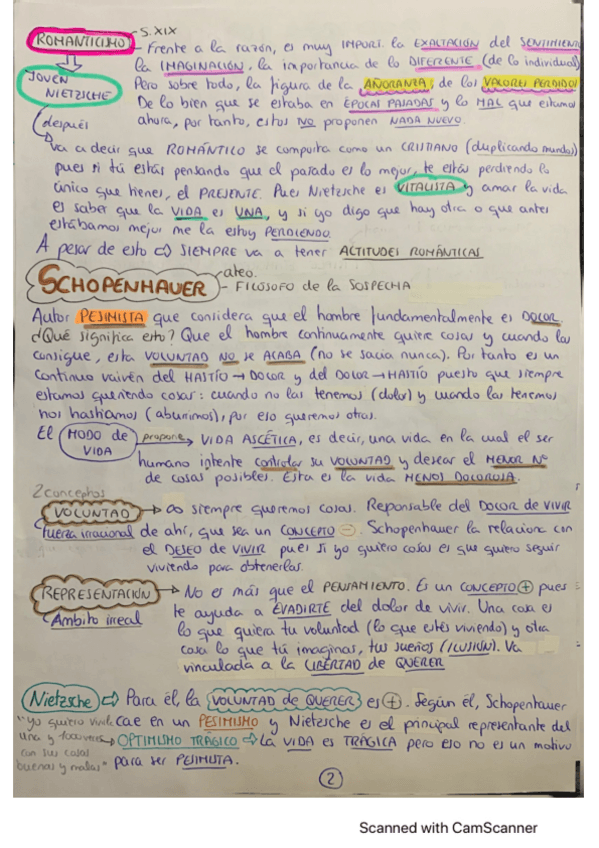 ROMANTICISMO
S.XIX
- Frente a la razón, es muy IMPORT. la EXALTACIÓN del SENTIMIENTO
la IMAGINACIÓN, la importancia de lo DIFERENTE (de lo individual)
JOVEN
NIETZSCHE
Pero sobre todo, la figura de la AÑORANZA, de los VALORES PERDIDOS
De lo bien que se estaba en ÉPOCAS PASADAS y lo MAL que estamos
ahora, por tanto, estos NO proponen NADA NUEVO.
después
Va a decir que ROMÁNTICO se comporta como un CRISTIANO (duplicando mundos)
pues si tú estás pensando que el pasado es lo mejor, te estás perdiendo lo
único que tienes, el PRESENTE. Pues Nietzsche es VITALISTA y amar la vida
es saber que la VIDA es UNA, y si yo digo que hay otra o que antes
estábamos mejor me la estoy PERDIENDO.
A pesar de esto ⇨ SIEMPRE va a tener ACTITUDES ROMÁNTICAS.
SCHOPENHAUER
ateo.
- FILÓSOFO de la SOSPECHA
Autor PESIMISTA que considera que el hombre fundamentalmente es DOLOR.
¿Qué significa esto? Que el hombre continuamente quiere cosas y cuando las
consigue, esta VOLUNTAD NO se ACABA (no se sacia nunca). Por tanto es un
continuo vaivén del HASTÍO → DOLOR y del DOLOR → HASTÍO puesto que siempre
estamos queriendo cosas: cuando no las tenemos (dolor) y cuando las tenemos
nos hastiamos (aburrimos), por eso queremos otras.
El MODO de VIDA propone VIDA ASCÉTICA, es decir, una vida en la cual el ser
humano intente controlar su VOLUNTAD y desear el MENOR Nº
de cosas posibles. Esta es la vida MENOS DOLOROSA.
2 conceptos
VOLUNTAD → ∞ siempre queremos cosas. Responsable del DOLOR DE VIVIR
fuerza irracional de ahí, que sea un CONCEPTO ⊖. Schopenhauer la relaciona con
el DESEO de VIVIR pues si yo quiero cosas es que quiero seguir
viviendo para obtenerlas.
REPRESENTACIÓN → No es más que el PENSAMIENTO. Es un CONCEPTO ⊕ pues
Ámbito irreal te ayuda a EVADIRTE del dolor de vivir. Una cosa es
lo que quiera tu voluntad (lo que estés viviendo) y otra
cosa lo que tú imaginas, tus sueños (ILUSIÓN). Va
vinculada a la LIBERTAD de QUERER
Nietzsche ⇨ Para él, la VOLUNTAD DE QUERER es ⊕. Según él, Schopenhauer
"yo quiero vivir cae en un PESIMISMO y Nietzsche es el principal representante del
una y 1000 veces OPTIMISMO TRÁGICO ⇨ La VIDA es TRÁGICA pero eso no es un motivo
con sus cosas
buenas y malas" para ser PESIMISTA.
2
Scanned with CamScanner